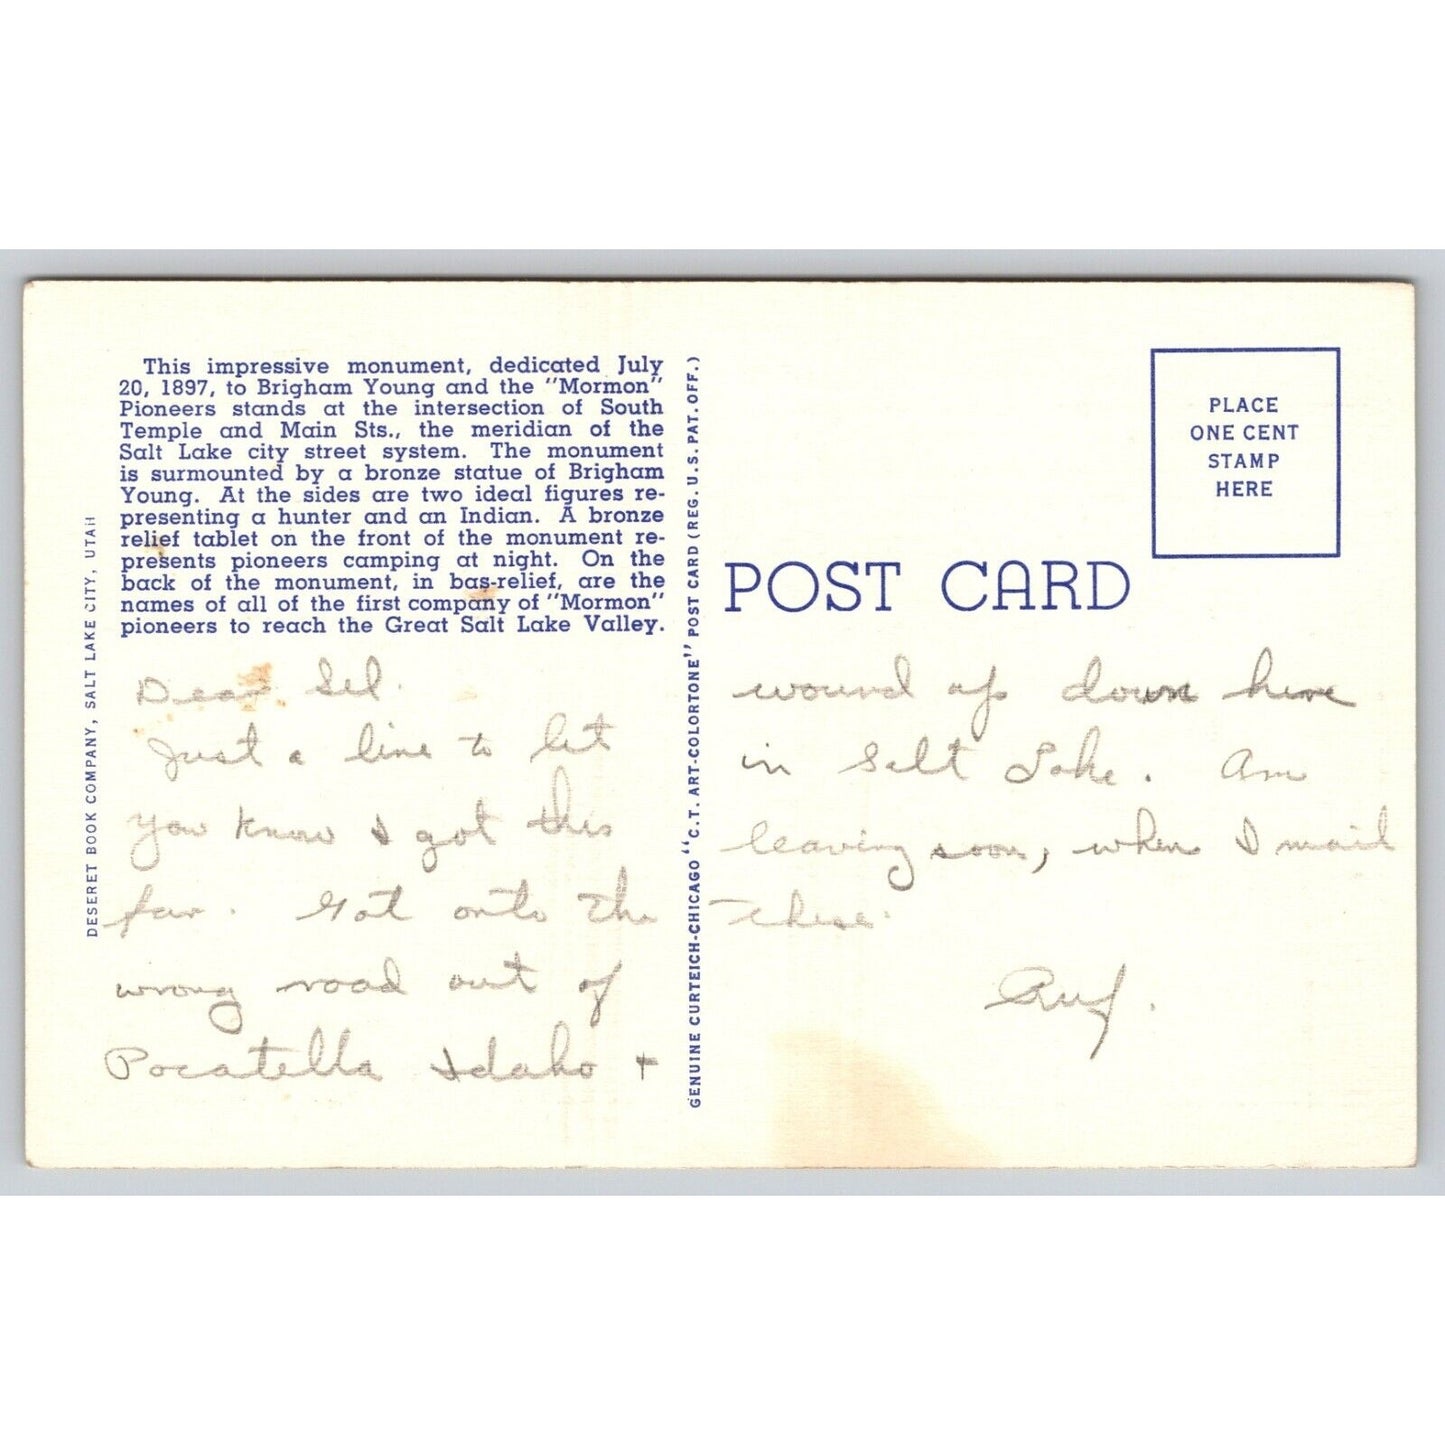 This impressive monument, dedicated July
20, 1897, to Brigham Young and the "Mormon"
Pioneers stands at the intersection of South
Temple and Main Sts., the meridian of the
Salt Lake city street system. The monument
is surmounted by a bronze statue of Brigham
Young. At the sides are two ideal figures re-
presenting a hunter and an Indian. A bronze
relief tablet on the front of the monument re-
presents pioneers camping at night. On the
back of the monument, in bas-relief, are the
names of all of the first company of "Mormon"
pioneers to reach the Great Salt Lake Valley.
DESERET BOOK COMPANY, SALT LAKE CITY, UTAH
Dear
Just a line to let
you know I got this
far. Got onto the
wrong road out of
Pocatella Idaho +
GENUINE CURTEICH-CHICAGO "C.T. ART-COLORTONE" POST CARD (REG. U.S. PAT. OFF.)
PLACE
ONE CENT
STAMP
HERE
POST CARD
wound up down here
in Salt Lake. Am
leaving soon, when I mail
these.